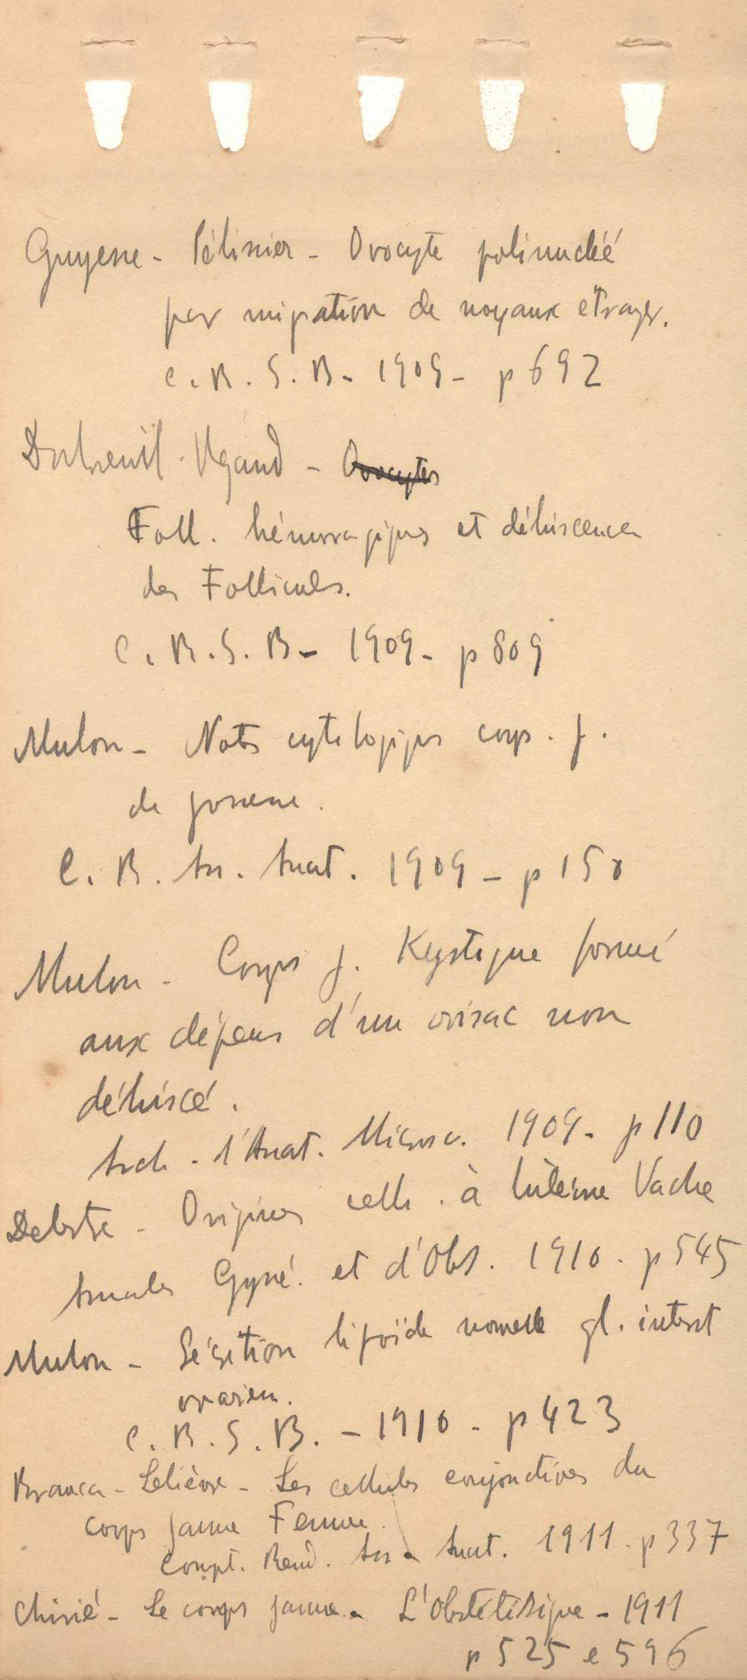 Guyesse - Pélissier - Ovocyte polinucléé
par migration de noyaux étranger.
C. R. S. B - 1909 - p 692
Dubreuil - Regaud - Ovocytes
Foll. hémorragiques et déhiscence
des Follicules.
C. R. S. B - 1909 - p 809
Mulon - Notes cytologiques corp. j.
de
C. R. Ass. Anat. 1909 - p 15
Mulon - Corps j. Kystique formé
aux dépens d'un ovisac non
déhiscé.
Arch. d'Anat. Microsc. 1909 - p 110
Delestre - Origines cells. à lutéine Vache
Annales Gyné. et d'Obst. 1910 - p 545
Mulon - Sécrétion lipoïde normale gl. interst
ovarien.
C. R. S. B. - 1910 - p 423
Branca - Lelièvre - Les cellules conjonctives du
corps jaune Femme.
Compt. Rend. Ass. Anat. 1911 - p 337
Chirié - Le corps jaune - L'Obstétrique - 1911
p 525 e 596